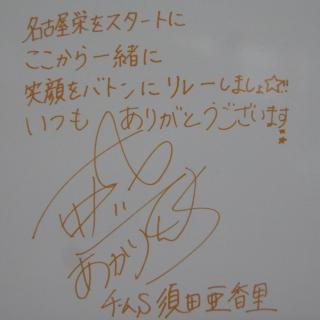 名古屋栄をスタートに
ここから一緒に
笑顔をバトンにリレーしましょ☆!!
いつもありがとうございます
あかりん
チームS 須田亜香里